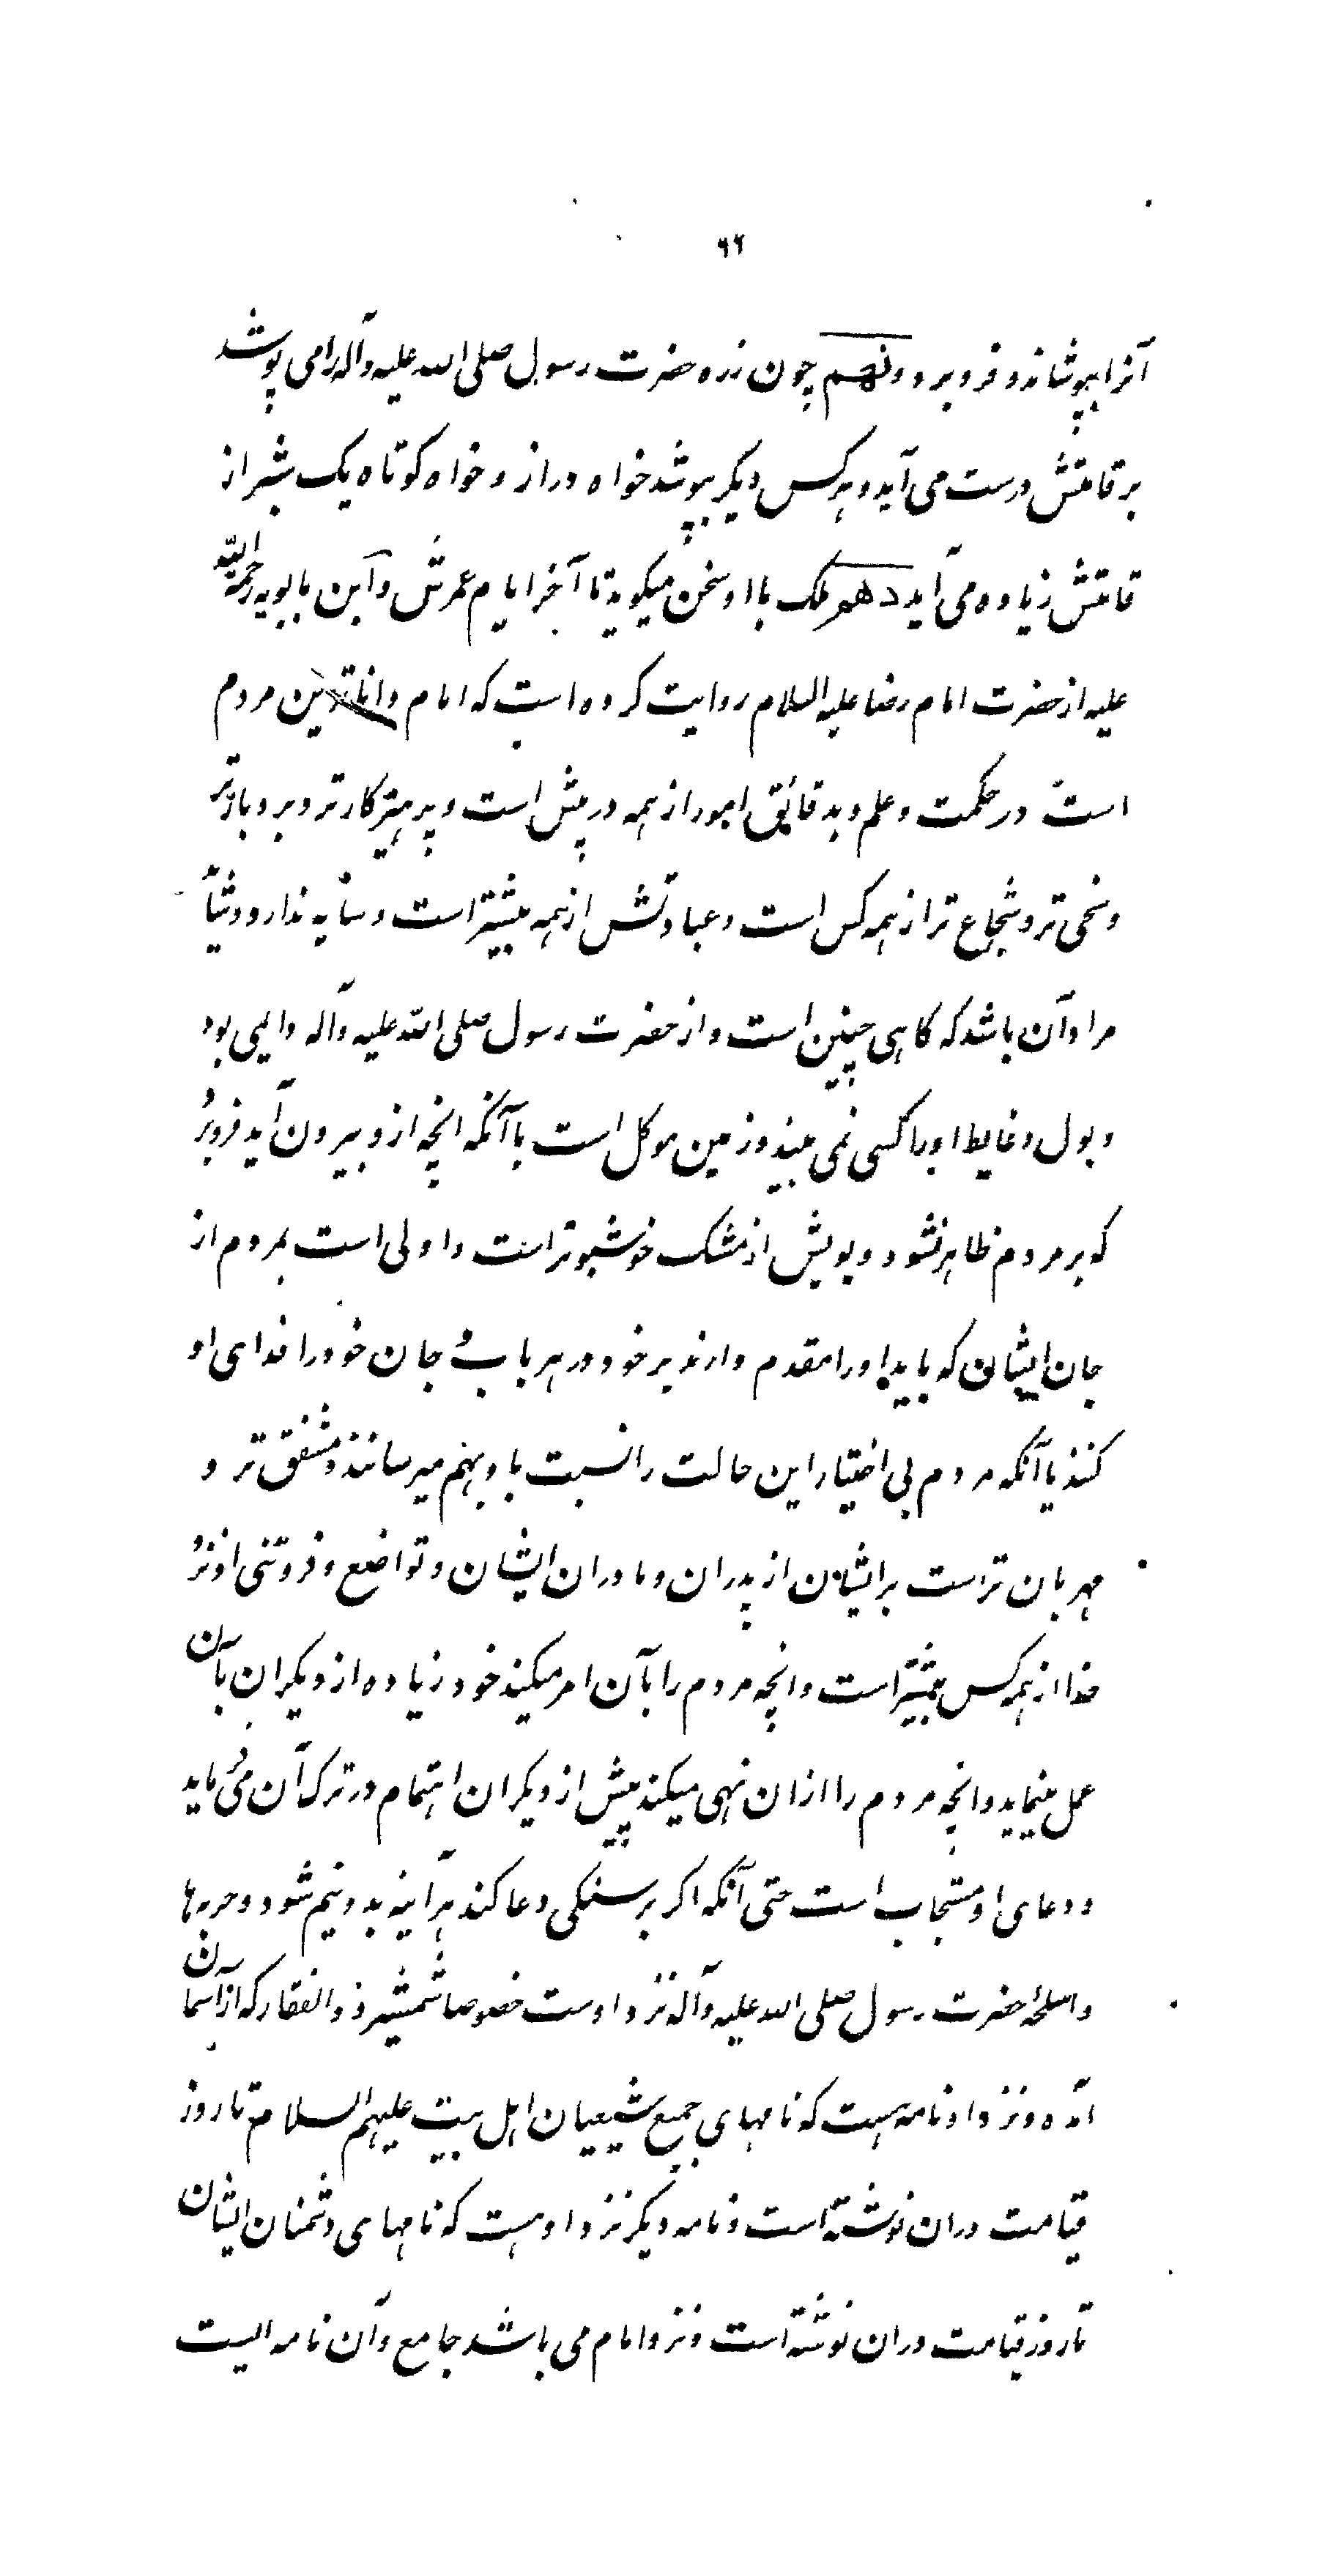 ۶۶
آنرا بپوشاند و فرو برد و نهم چون زره حضرت رسول صلی الله علیه وآله را می پوشد
بر قامتش درست می آید و هر کس دیگر بپوشد خواه دراز و خواه کوتاه یک شبر از
قامتش زیاده می آید دهم ملک با او سخن میگوید تا آخر ایام عمرش و آبن بابویه رحمة الله
علیه از حضرت امام رضا علیه السلام روایت کرده است که امام داناترین مردم
است در حکمت و علم و بدقائق امور از همه در پیش است و پرهیزکارتر و بردبارتر
و سخی تر و شجاع تر از همه کس است و عبادتش از همه بیشتر است و سایه ندارد و شاید
مراد آن باشد که گاهی چنین است و از حضرت رسول صلی الله علیه وآله دایمی بود
و بول و غایط او را کسی نمی بیند و زمین موکل است با آنکه انچه از و بیرون آید فرو برد
که بر مردم ظاهر نشود و بویش از مشک خوشبوتر است و اولی است بمردم از
جان ایشان که باید او را مقدم دارند بر خود در هر باب و جان خود را فدای او
کنند یا آنکه مردم بی اختیار این حالت را نسبت باو بهم میرسانند و مشفق تر و
مهربان تر است بر ایشان از پدران و مادران ایشان و تواضع و فروتنی او نزد
خدا از همه کس بیشتر است و انچه مردم را بآن امر میکند خود زیاده از دیگران بآن
عمل مینماید و انچه مردم را ازان نهی میکند پیش از دیگران اهتمام در ترک آن می نماید
و دعای او مستجاب است حتی آنکه اگر بر سنگی دعا کند هر آینه بدو نیم شود و حربه ها
و اسلحهٔ حضرت رسول صلی الله علیه وآله نزد اوست خصوصا شمشیر ذوالفقار که از آسمان
آمده و نزد او نامه هست که نامهای جمیع شیعیان اهل بیت علیهم السلام تا روز
قیامت دران نوشته است و نامه دیگر نزد او هست که نامهای دشمنان ایشان
تا روز قیامت دران نوشته است و نزد امام می باشد جامع و آن نامه ایست